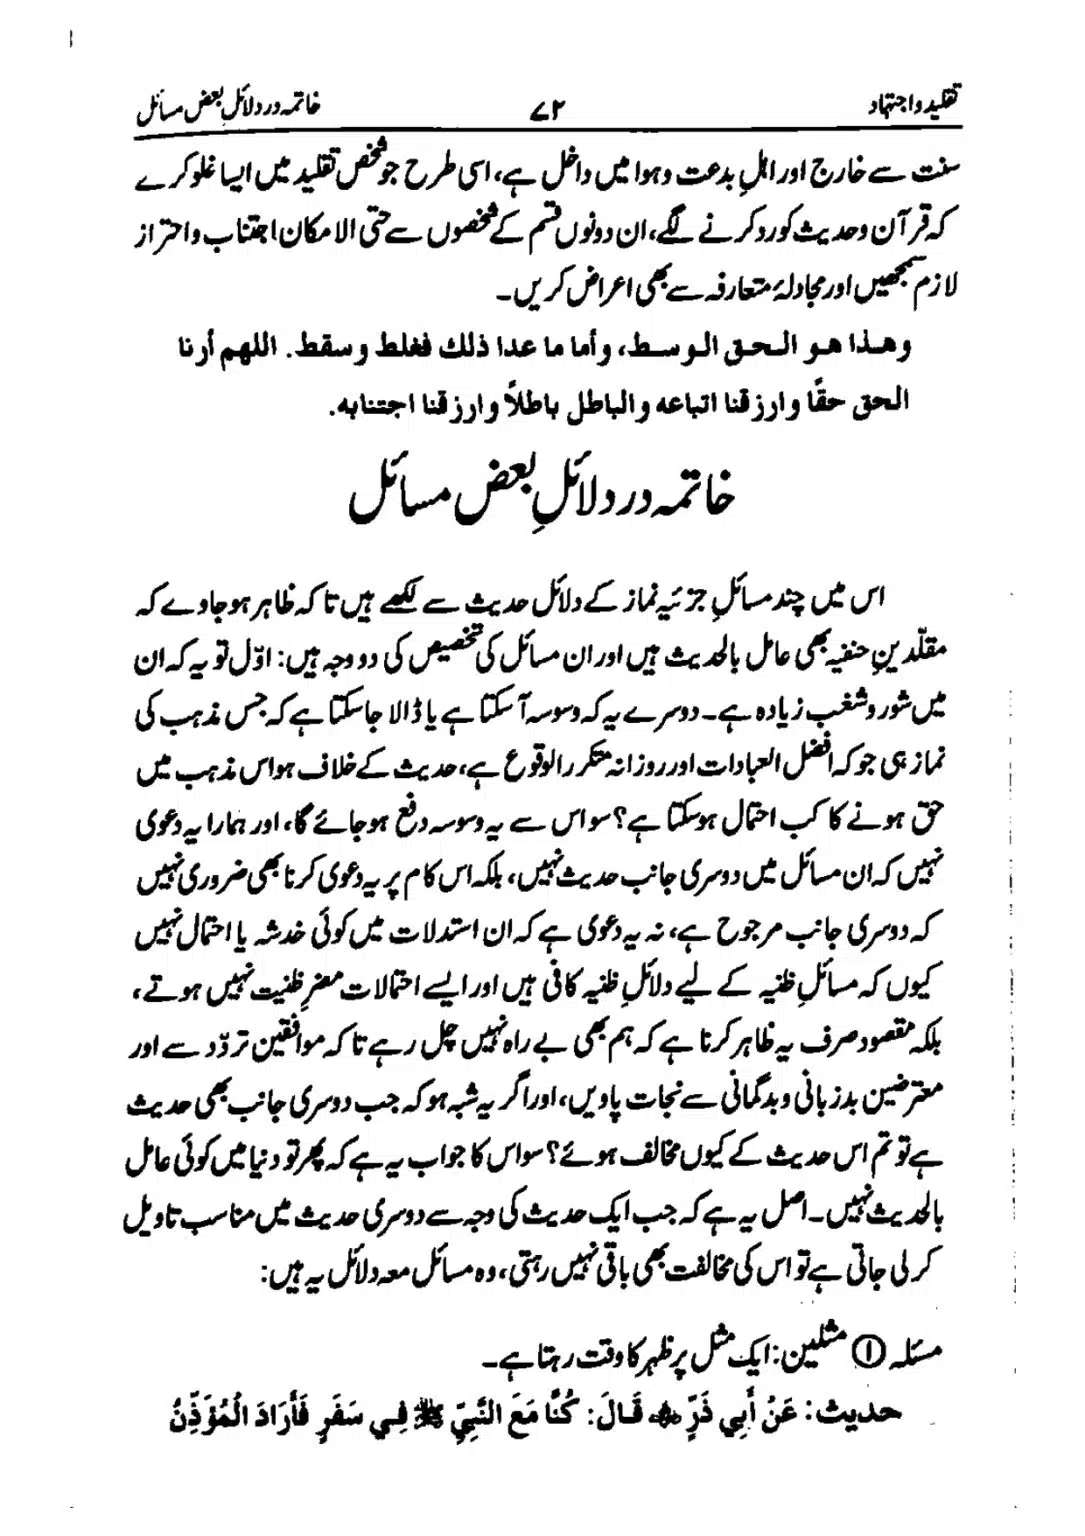 تقلید و اجتہاد ۷۲ خاتمہ در دلائلِ بعض مسائل
سنت سے خارج اور اہلِ بدعت وہوا میں داخل ہے، اسی طرح جو شخص تقلید میں ایسا غلو کرے
کہ قرآن وحدیث کو رد کرنے لگے، ان دونوں قسم کے شخصوں سے حتی الامکان اجتناب واحتراز
لازم سمجھیں اور مجادلۂ متعارفہ سے بھی اعراض کریں۔
وهذا هو الحق الوسط، وأما ما عدا ذلك فغلط وسقط. اللهم أرنا
الحق حقًا وارزقنا اتباعه والباطل باطلًا وارزقنا اجتنابه.
خاتمہ در دلائلِ بعض مسائل
اس میں چند مسائلِ جزئیہ نماز کے دلائل حدیث سے لکھے ہیں تاکہ ظاہر ہو جاوے کہ
مقلّدینِ حنفیہ بھی عامل بالحدیث ہیں اور ان مسائل کی تخصیص کی دو وجہ ہیں: اوّل تو یہ کہ ان
میں شور وشغب زیادہ ہے۔ دوسرے یہ کہ وسوسہ آسکتا ہے یا ڈالا جاسکتا ہے کہ جس مذہب کی
نماز ہی جو کہ افضل العبادات اور روزانہ متکرر الوقوع ہے، حدیث کے خلاف ہو اس مذہب میں
حق ہونے کا کب احتمال ہوسکتا ہے؟ سو اس سے یہ وسوسہ دفع ہو جائے گا، اور ہمارا یہ دعوی
نہیں کہ ان مسائل میں دوسری جانب حدیث نہیں، بلکہ اس کام پر یہ دعوی کرنا بھی ضروری نہیں
کہ دوسری جانب مرجوح ہے، نہ یہ دعوی ہے کہ ان استدلات میں کوئی خدشہ یا احتمال نہیں
کیوں کہ مسائلِ ظنیہ کے لیے دلائلِ ظنیہ کافی ہیں اور ایسے احتمالات مضرِ ظنیت نہیں ہوتے،
بلکہ مقصود صرف یہ ظاہر کرنا ہے کہ ہم بھی بے راہ نہیں چل رہے تاکہ موافقین تردّد سے اور
معترضین بدزبانی وبدگمانی سے نجات پاویں، اور اگر یہ شبہ ہو کہ جب دوسری جانب بھی حدیث
ہے تو تم اس حدیث کے کیوں مخالف ہوئے؟ سو اس کا جواب یہ ہے کہ پھر تو دنیا میں کوئی عامل
بالحدیث نہیں۔ اصل یہ ہے کہ جب ایک حدیث کی وجہ سے دوسری حدیث میں مناسب تاویل
کرلی جاتی ہے تو اس کی مخالفت بھی باقی نہیں رہتی، وہ مسائل معہ دلائل یہ ہیں:
مسئلہ ① مثلین: ایک مثل پر ظہر کا وقت رہتا ہے۔
حدیث: عَنْ أَبِي ذَرٍّ ﷛ قَالَ: كُنَّا مَعَ النَّبِيِّ ﷺ فِي سَفَرٍ فَأَرَادَ الْمُؤَذِّنُ